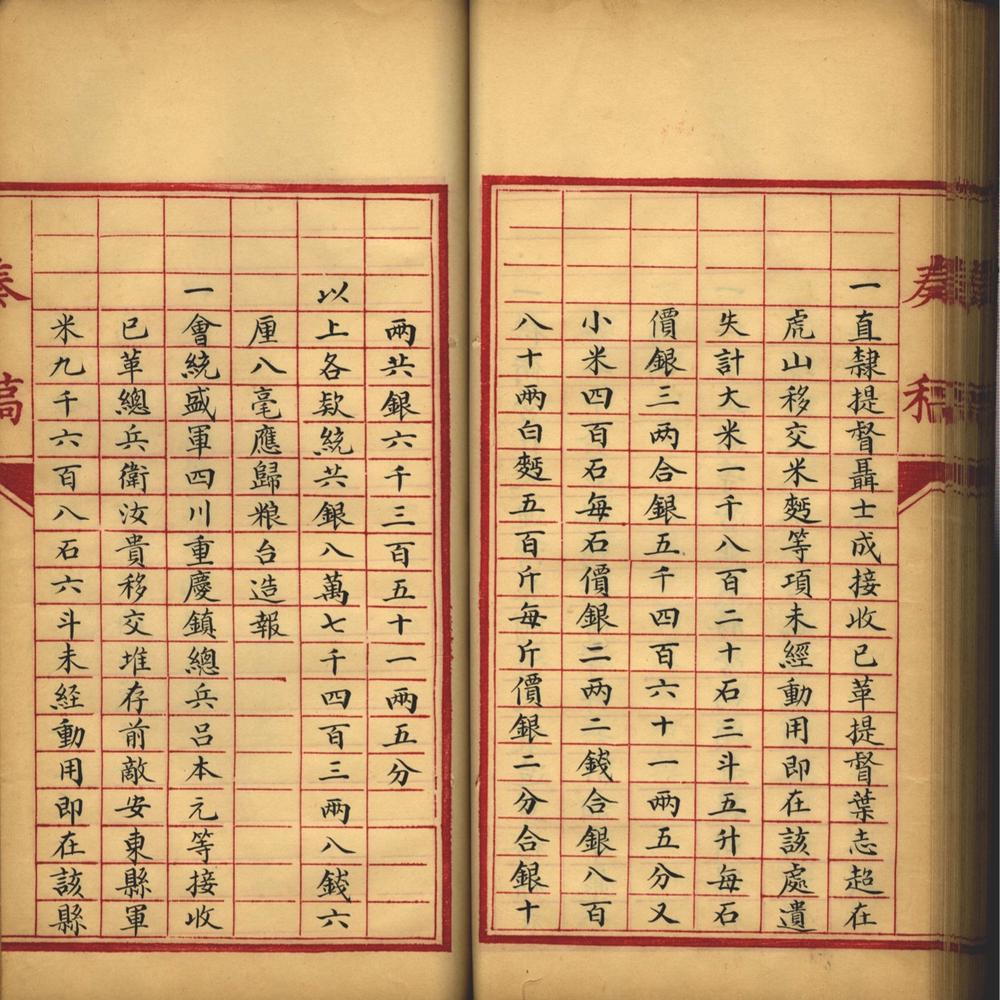 奏稿
一直隸提督聶士成接收已革提督葉志超在
虎山移交米麪等項未經動用即在該處遺
失計大米一千八百二十石三斗五升每石
價銀三两合銀五千四百六十一两五分又
小米四百石每石價銀二两二錢合銀八百
八十两白麪五百斤每斤價銀二分合銀十
两共銀六千三百五十一两五分
以上各欵統共銀八萬七千四百三两八錢六
厘八毫應歸粮台造報
一會統盛軍四川重慶鎮總兵呂本元等接收
已革總兵衛汝貴移交堆存前敵安東縣軍
米九千六百八石六斗未経動用即在該縣
奏稿